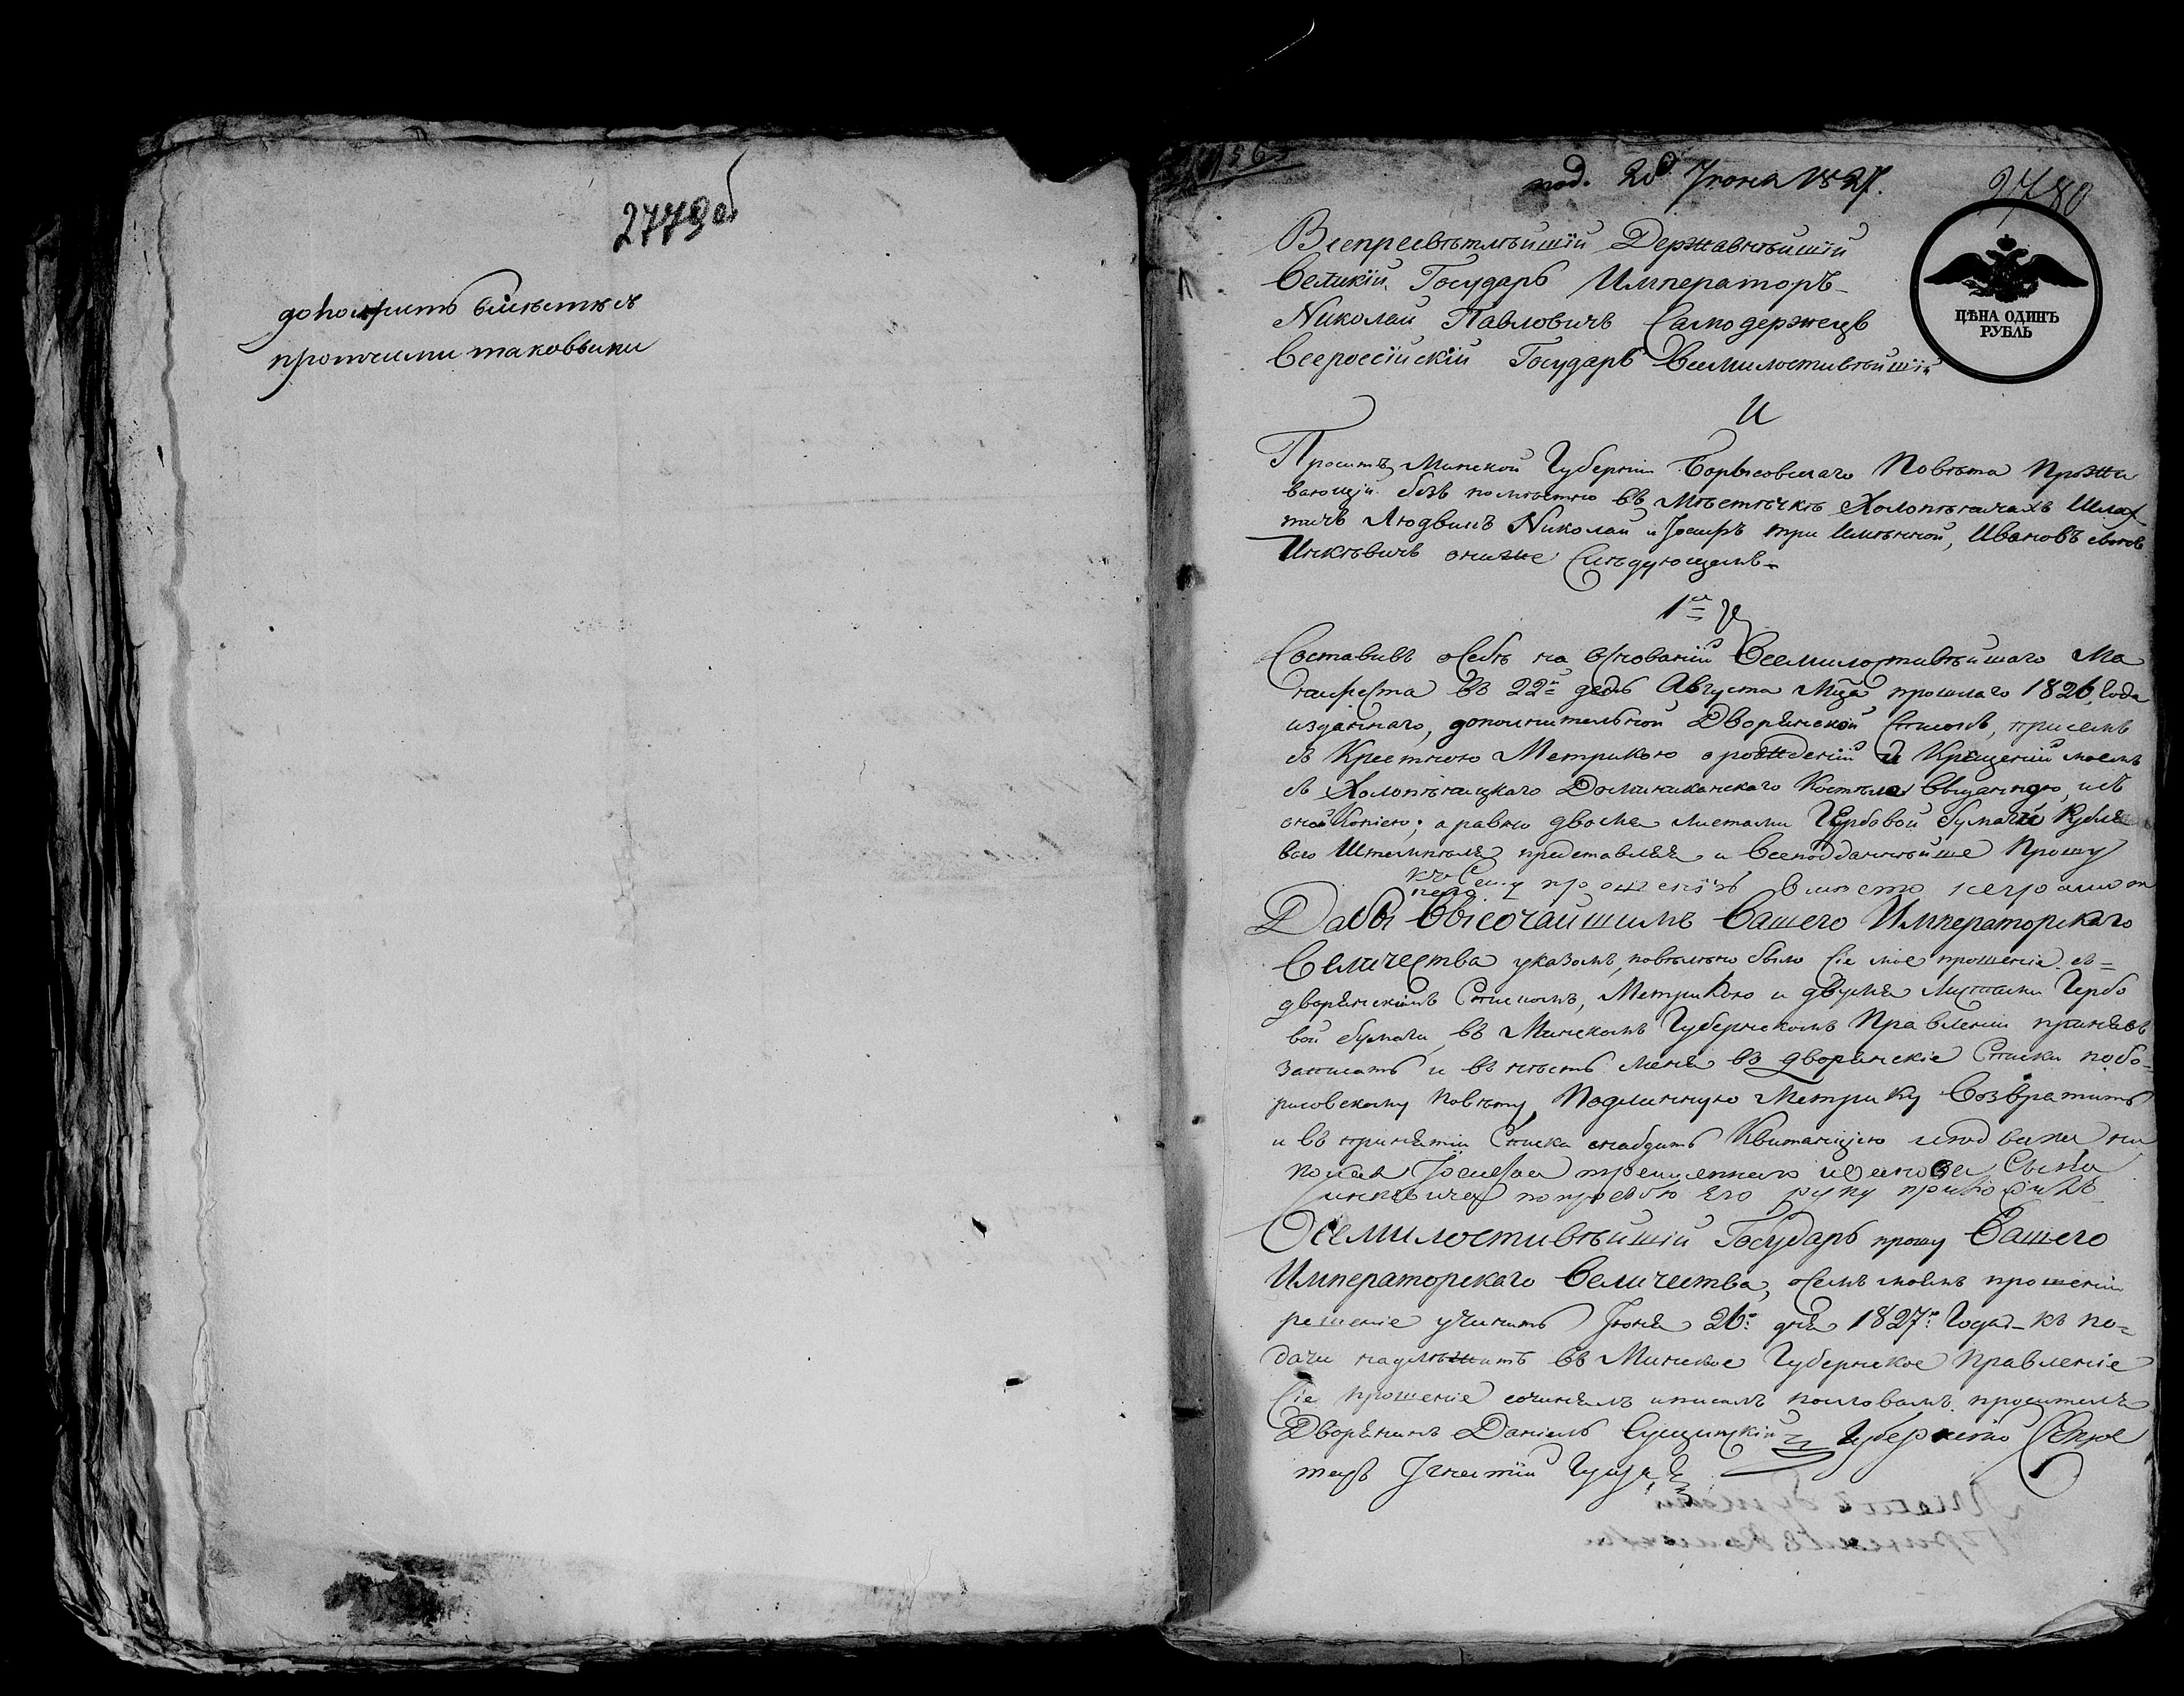 2779 об
доложить вместѣ съ
протчими таковыми
под. 28 Июня 1827.
2780
ЦѢНА ОДИНЪ
РУБЛЬ
Всепресвѣтлѣйшій Державнѣйшій
Великій Государь Императоръ
Николай Павловичъ Самодержецъ
Всероссійскій Государь Всемилостивѣйшій
Проситъ Минской Губерніи Борысовскаго Повѣта Прожи
вающій безъ помѣстно въ Мѣстѣчкѣ Холопѣничахъ Шлях
тичъ Людвикъ Николай и Іосифъ три имѣнной, Ивановъ сынъ
очиже Слѣдующемъ
1е
Составивъ осебѣ на основаніи Всемилостивѣйшаго Ма
нифеста въ 22й день Августа Мца прошлаго 1826 Года
изданнаго, дополнительной Дворянской Списокъ, присемъ
съ Крестною Метрикою о рожденіи и Крещеніи моемъ
съ Холопѣницкаго Доминиканскаго Костела выданною, исъ
оной Копіею; а равно двома листами Гербовой бумаги Рубле
ваго Штемпеля представляя и Всеподданнѣйше Прошу
къ Сему прошенію вместо неграмот
Дабы Высочайшимъ Вашего Императорскаго
Величества указомъ, повелѣно было Сіе мое прошеніе съ=
дворянскимъ Спискомъ, Метрикою и двумя Листами Гербо
вой бумаги, въ Минскомъ Губернскомъ Правленіи принявъ
записать и внѣсть меня въ дворянскіе Списки побо=
рисовскому Повѣту, Подлинную Метрику Возвратить
и въ принятіи Списка снабдить Квитанціею людвика ни
колая Іосифа треименного иванова Сына
попрозбю Его руку приложилъ
Всемилостивѣйшій Государь прошу Вашего
Императорскаго Величества, осемъ моемъ прошеніи
решеніе учинить Іюня 26. дня 1827. Года_ къ по=
дачи надлѣжитъ въ Минское Губернское Правленіе
Сіе прошеніе сочинялъ иписалъ пословамъ просителя
Дворянинъ Даніель Губернскій Секре
таръ Игнатій